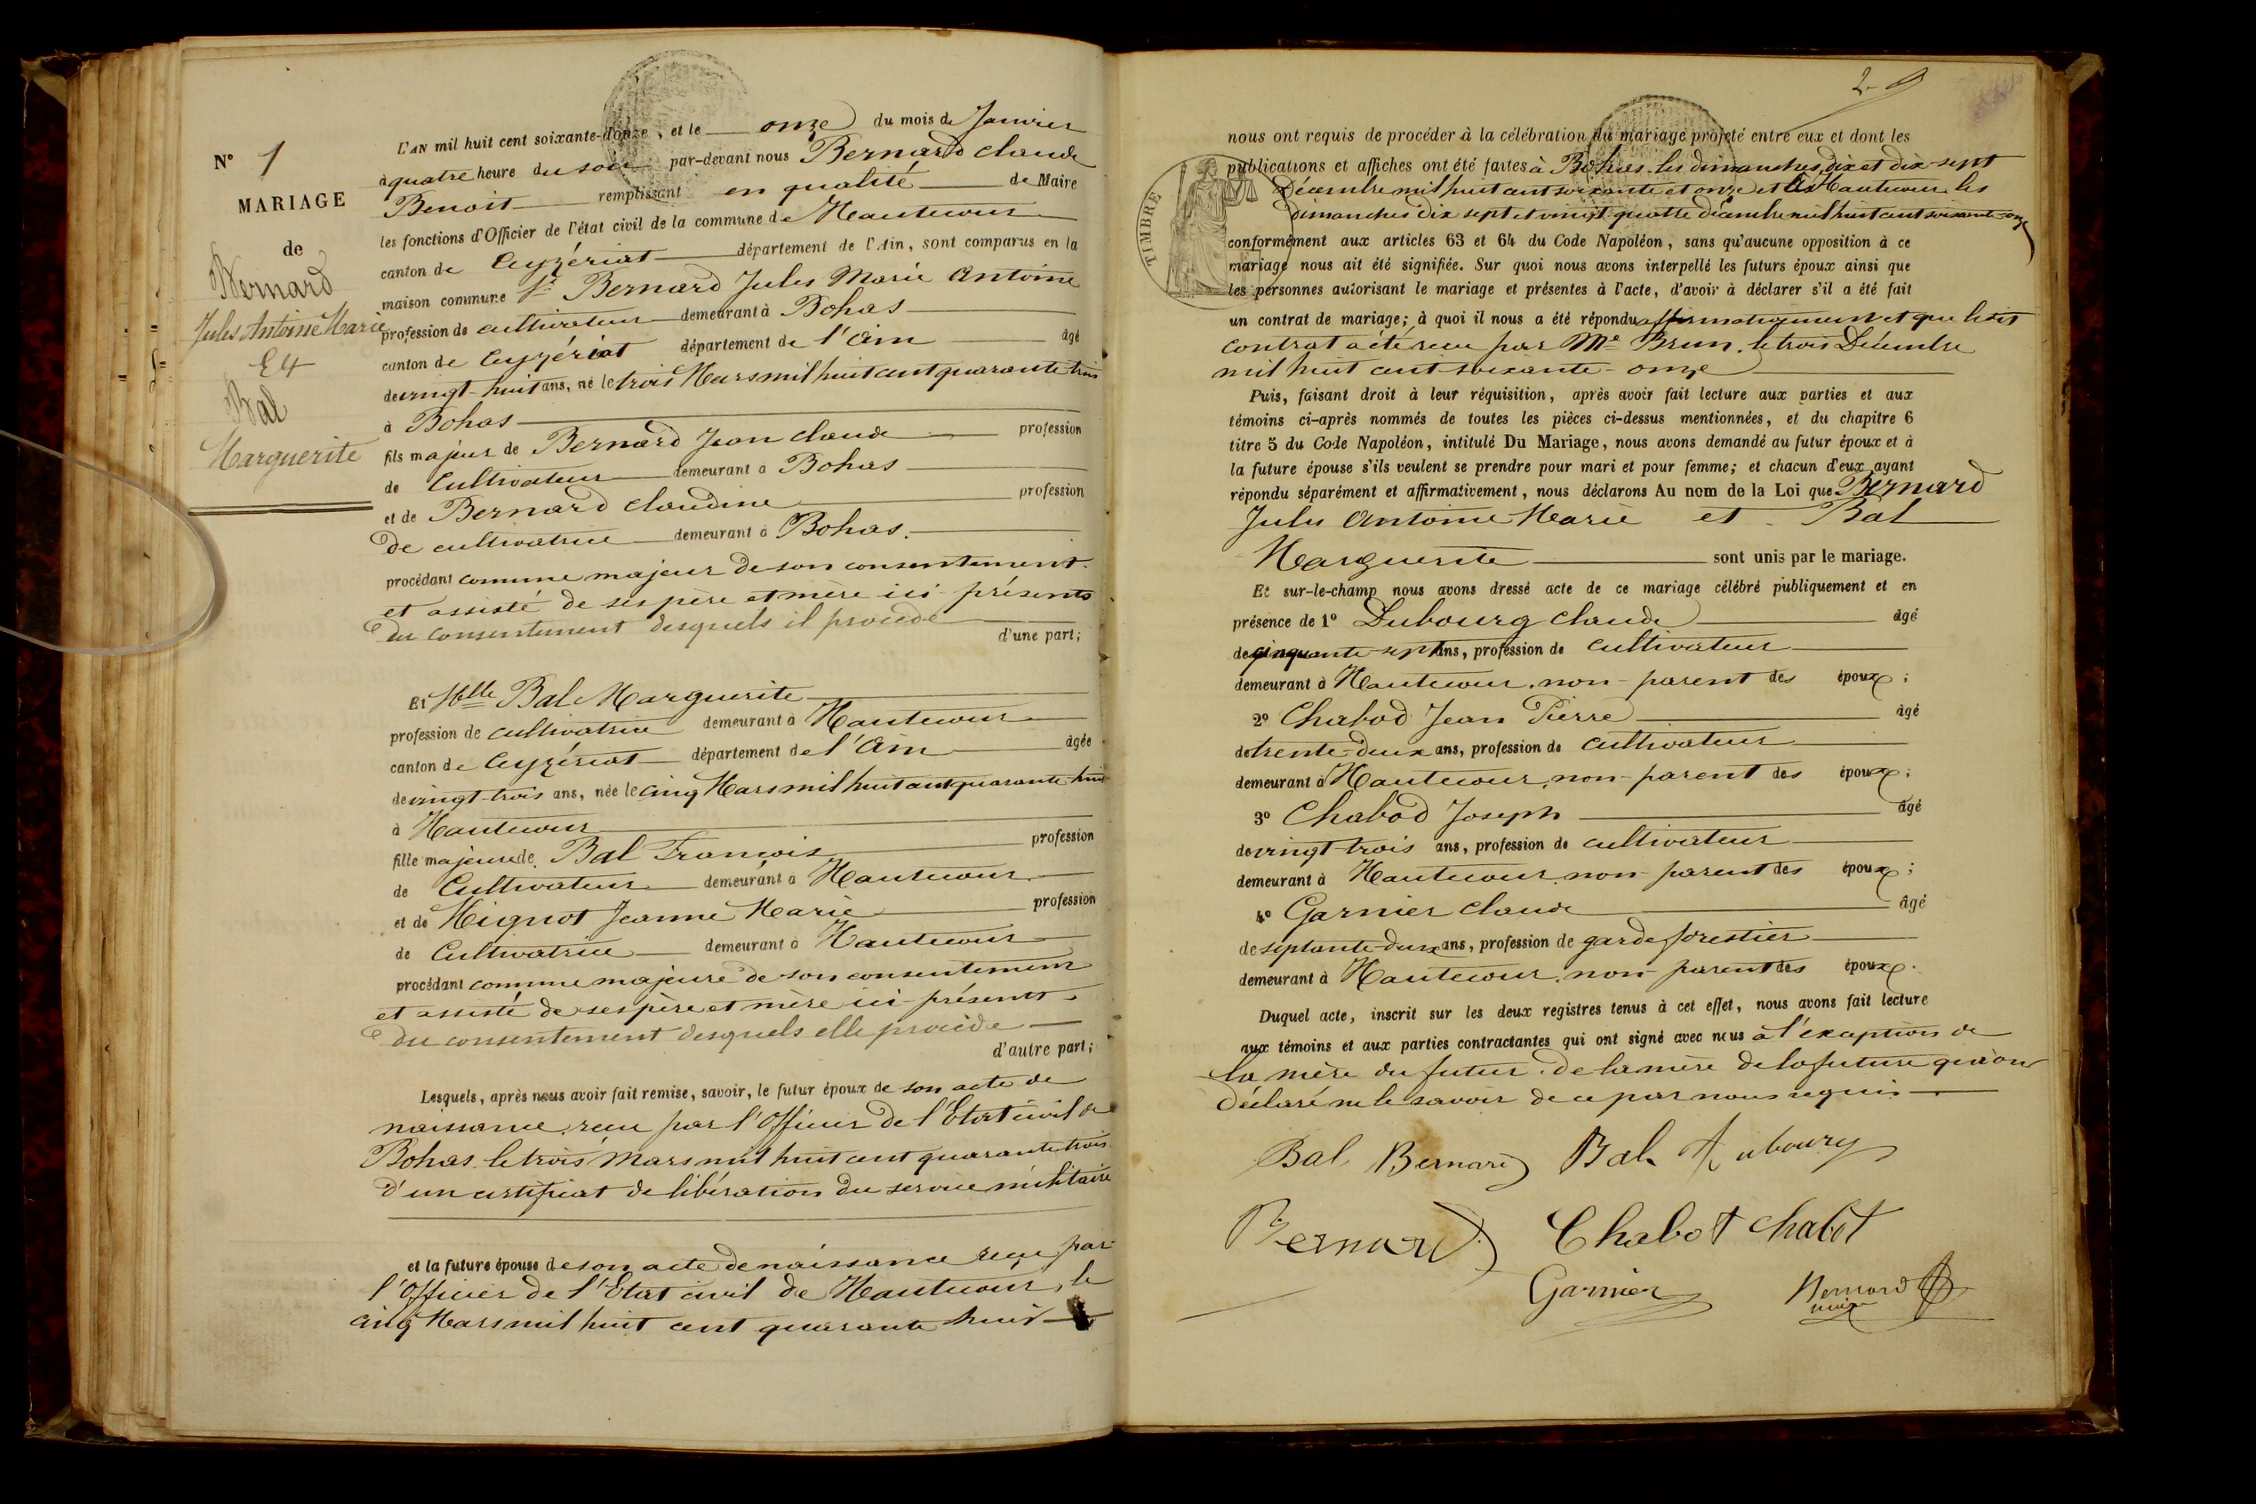 N° 1
MARIAGE
de
Bernard
Jules Antoine Marie
Et
Bal
Marguerite
L'AN mil huit cent soixante-douze, et le onze du mois de Janvier
à quatre heure du soir par-devant nous Bernard Claude
Benoit remplissant en qualité de Maire
les fonctions d'Officier de l'état civil de la commune de Hautecour
canton de Ceyzériat département de l'Ain, sont comparus en la
maison commune Sr Bernard Jules Marie Antoine
profession de cultivateur demeurant à Bohas
canton de Ceyzériat département de l'Ain âgé
de vingt-huit ans, né le trois Mars mil huit cent quarante trois
à Bohas
fils majeur de Bernard Jean Claude profession
de Cultivateur demeurant à Bohas
et de Bernard Claudine profession
de cultivatrice demeurant à Bohas.
procédant comme majeur de son consentement
et assisté de ses père et mère ici présents
du consentement desquels il procède
d'une part;
Et Mlle Bal Marguerite
profession de cultivatrice demeurant à Hautecour
canton de Ceyzériat département de l'Ain âgée
de vingt-trois ans, née le cinq Mars mil huit cent quarante huit
à Hautecour
fille majeure de Bal François profession
de Cultivateur demeurant à Hautecour
et de Mignot Jeanne Marie profession
de Cultivatrice demeurant à Hautecour
procédant comme majeure de son consentement
et assisté de ses père et mère ici présents
du consentement desquels elle procède
d'autre part;
Lesquels, après nous avoir fait remise, savoir, le futur époux de son acte de
naissance reçu par l'Officier de l'Etat civil de
Bohas le trois Mars mil huit cent quarante trois
d'un certificat de libération du service militaire
et la future épouse de son acte de naissance reçu par
l'Officier de l'Etat civil de Hautecour, le
cinq Mars mil huit cent quarante huit
2
TIMBRE
nous ont requis de procéder à la célébration du mariage projeté entre eux et dont les
publications et affiches ont été faites à Bohas les dimanches dix et dix-sept
Décembre mil huit cent soixante et onze et à Hautecour les
dimanches dix sept et vingt quatre décembre mil huit cent soixante-onze
conformément aux articles 63 et 64 du Code Napoléon, sans qu'aucune opposition à ce
mariage nous ait été signifiée. Sur quoi nous avons interpellé les futurs époux ainsi que
les personnes autorisant le mariage et présentes à l'acte, d'avoir à déclarer s'il a été fait
un contrat de mariage; à quoi il nous a été répondu affirmativement et que ledit
contrat a été reçu par Me Brun, le trois Décembre
mil huit cent soixante-onze
Puis, faisant droit à leur réquisition, après avoir fait lecture aux parties et aux
témoins ci-après nommés de toutes les pièces ci-dessus mentionnées, et du chapitre 6
titre 5 du Code Napoléon, intitulé Du Mariage, nous avons demandé au futur époux et à
la future épouse s'ils veulent se prendre pour mari et pour femme; et chacun d'eux ayant
répondu séparément et affirmativement, nous déclarons Au nom de la Loi que Bernard
Jules Antoine Marie et Bal
Marguerite sont unis par le mariage.
Et sur-le-champ nous avons dressé acte de ce mariage célébré publiquement et en
présence de 1° Dubourg Claude âgé
de cinquante-sept ans, profession de cultivateur
demeurant à Hautecour, non-parent des époux;
2° Chabod Jean Pierre âgé
de trente-deux ans, profession de cultivateur
demeurant à Hautecour, non-parent des époux;
3° Chabod Joseph âgé
de vingt-trois ans, profession de cultivateur
demeurant à Hautecour, non-parent des époux;
4° Garnier Claude âgé
de septante-deux ans, profession de garde forestier
demeurant à Hautecour, non-parent des époux.
Duquel acte, inscrit sur les deux registres tenus à cet effet, nous avons fait lecture
aux témoins et aux parties contractantes qui ont signé avec nous à l'exception de
la mère du futur, de la mère de la future qui ont
déclaré ne le savoir de ce par nous requis
Bal Bernard Bal Dubourg
Bernard Chabot Chabot
Garnier Bernard
maire